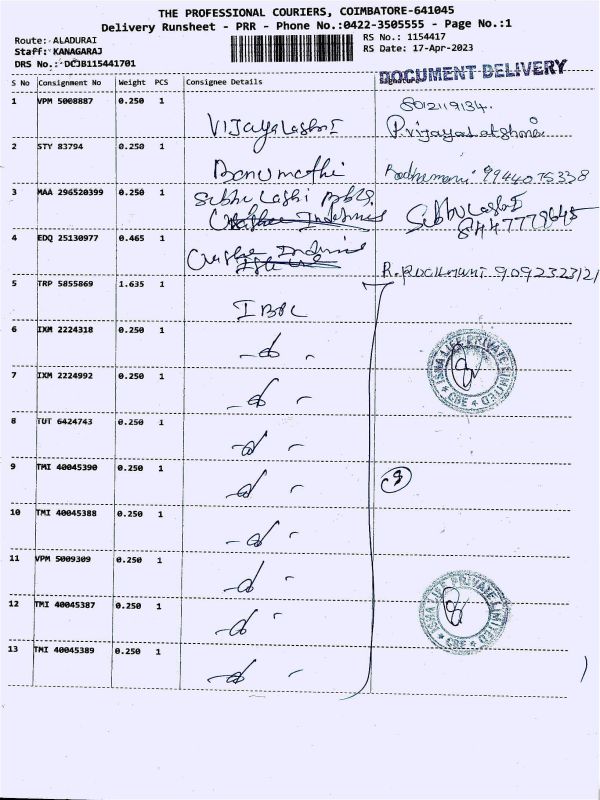 THE PROFESSIONAL COURIERS, COIMBATORE-641045
Delivery Runsheet - PRR - Phone No.:0422-3505555 - Page No.:1
Route: ALADURAI
RS No.: 1154417
Staff: KANAGARAJ
RS Date: 17-Apr-2023
DRS No.: DCJB115441701
DOCUMENT DELIVERY
S No Consignment No Weight PCS Consignee Details Signature
1 VPM 5008887 0.250 1 8012119134.
Vijayalashmi P.vijayalakshmi
2 STY 83794 0.250 1
Banumathi 9944075338
3 MAA 296520399 0.250 1 Sibhu Lashi
8447779645
4 EDQ 25130977 0.465 1
5 TRP 5855869 1.635 1
6 IXM 2224318 0.250 1
ISHA LIFE PRIVATE LIMITED
CBE
7 IXM 2224992 0.250 1
8 TUT 6424743 0.250 1
9 TMI 40045390 0.250 1
9
10 TMI 40045388 0.250 1
11 VPM 5009309 0.250 1
12 TMI 40045387 0.250 1
ISHA LIFE PRIVATE LIMITED
CBE
13 TMI 40045389 0.250 1